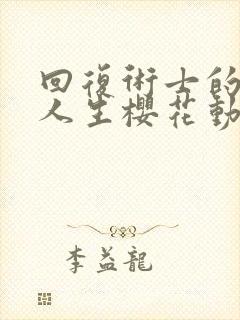 回復術士的
人生櫻花動
李益龍